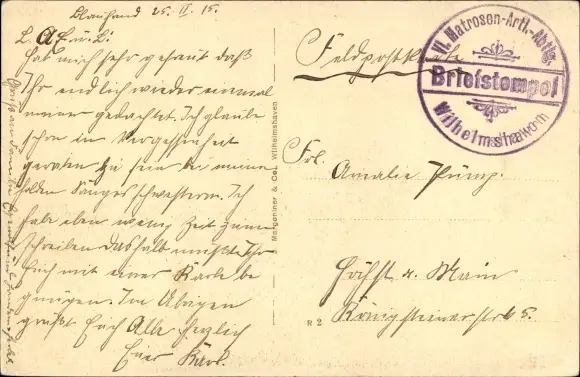 Blauhand 25.II.15.
L. A. E. u. L!
Hab mich sehr gefreut daß
Ihr endlich wieder einmal
meiner gedachtet. Ich glaubte
schon in Vergessenheit
geraten zu sein bei meinen
holden Sangesschwestern. Ich
habe eben wenig Zeit zum
Schreiben deshalb müßt Ihr
Euch mit einer Karte be
gnügen. Im Übrigen
grüßt Euch Alle herzlich
Euer Karl.
Margoniner & Co., Wilhelmshaven
VI. Matrosen-Artl.-Abtlg.
Briefstempel
Wilhelmshaven
Feldpostkarte
Frl.
Amalie Pümp.
Höchst a. Main
Königsteinerstr. 5.
R 2